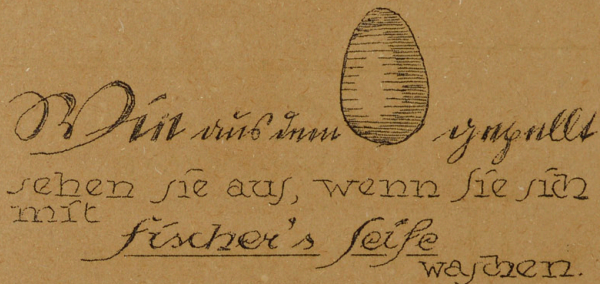 Wie aus dem gepellt
sehen sie aus, wenn Sie sich
mit
Fischer's Seife
waschen.